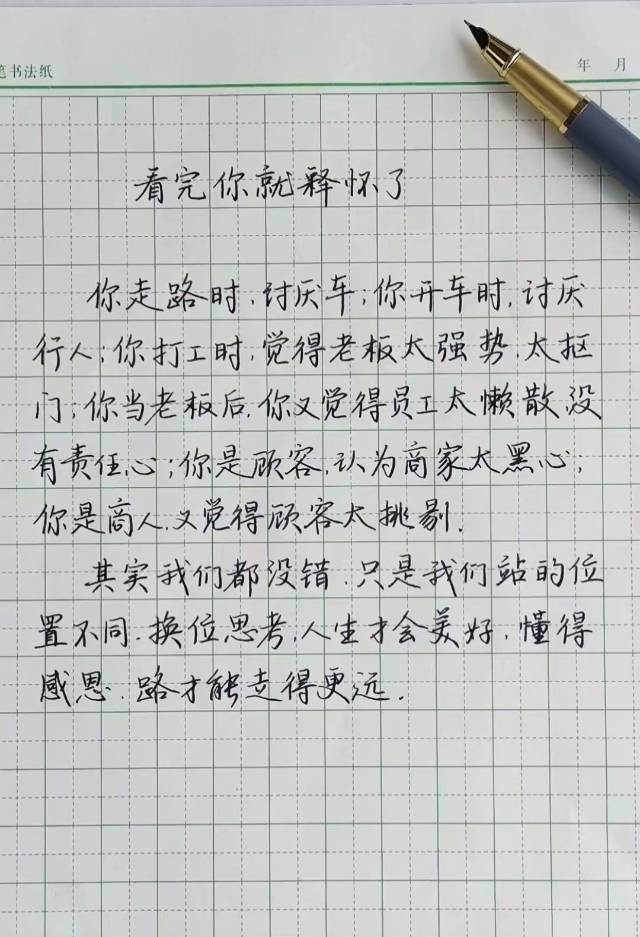 笔书法纸
年 月
看完你就释怀了
你走路时,讨厌车;你开车时,讨厌
行人;你打工时,觉得老板太强势,太抠
门;你当老板后,你又觉得员工太懒散,没
有责任心;你是顾客,认为商家太黑心;
你是商人,又觉得顾客太挑剔.
其实我们都没错,只是我们站的位
置不同.换位思考,人生才会美好,懂得
感恩,路才能走得更远.